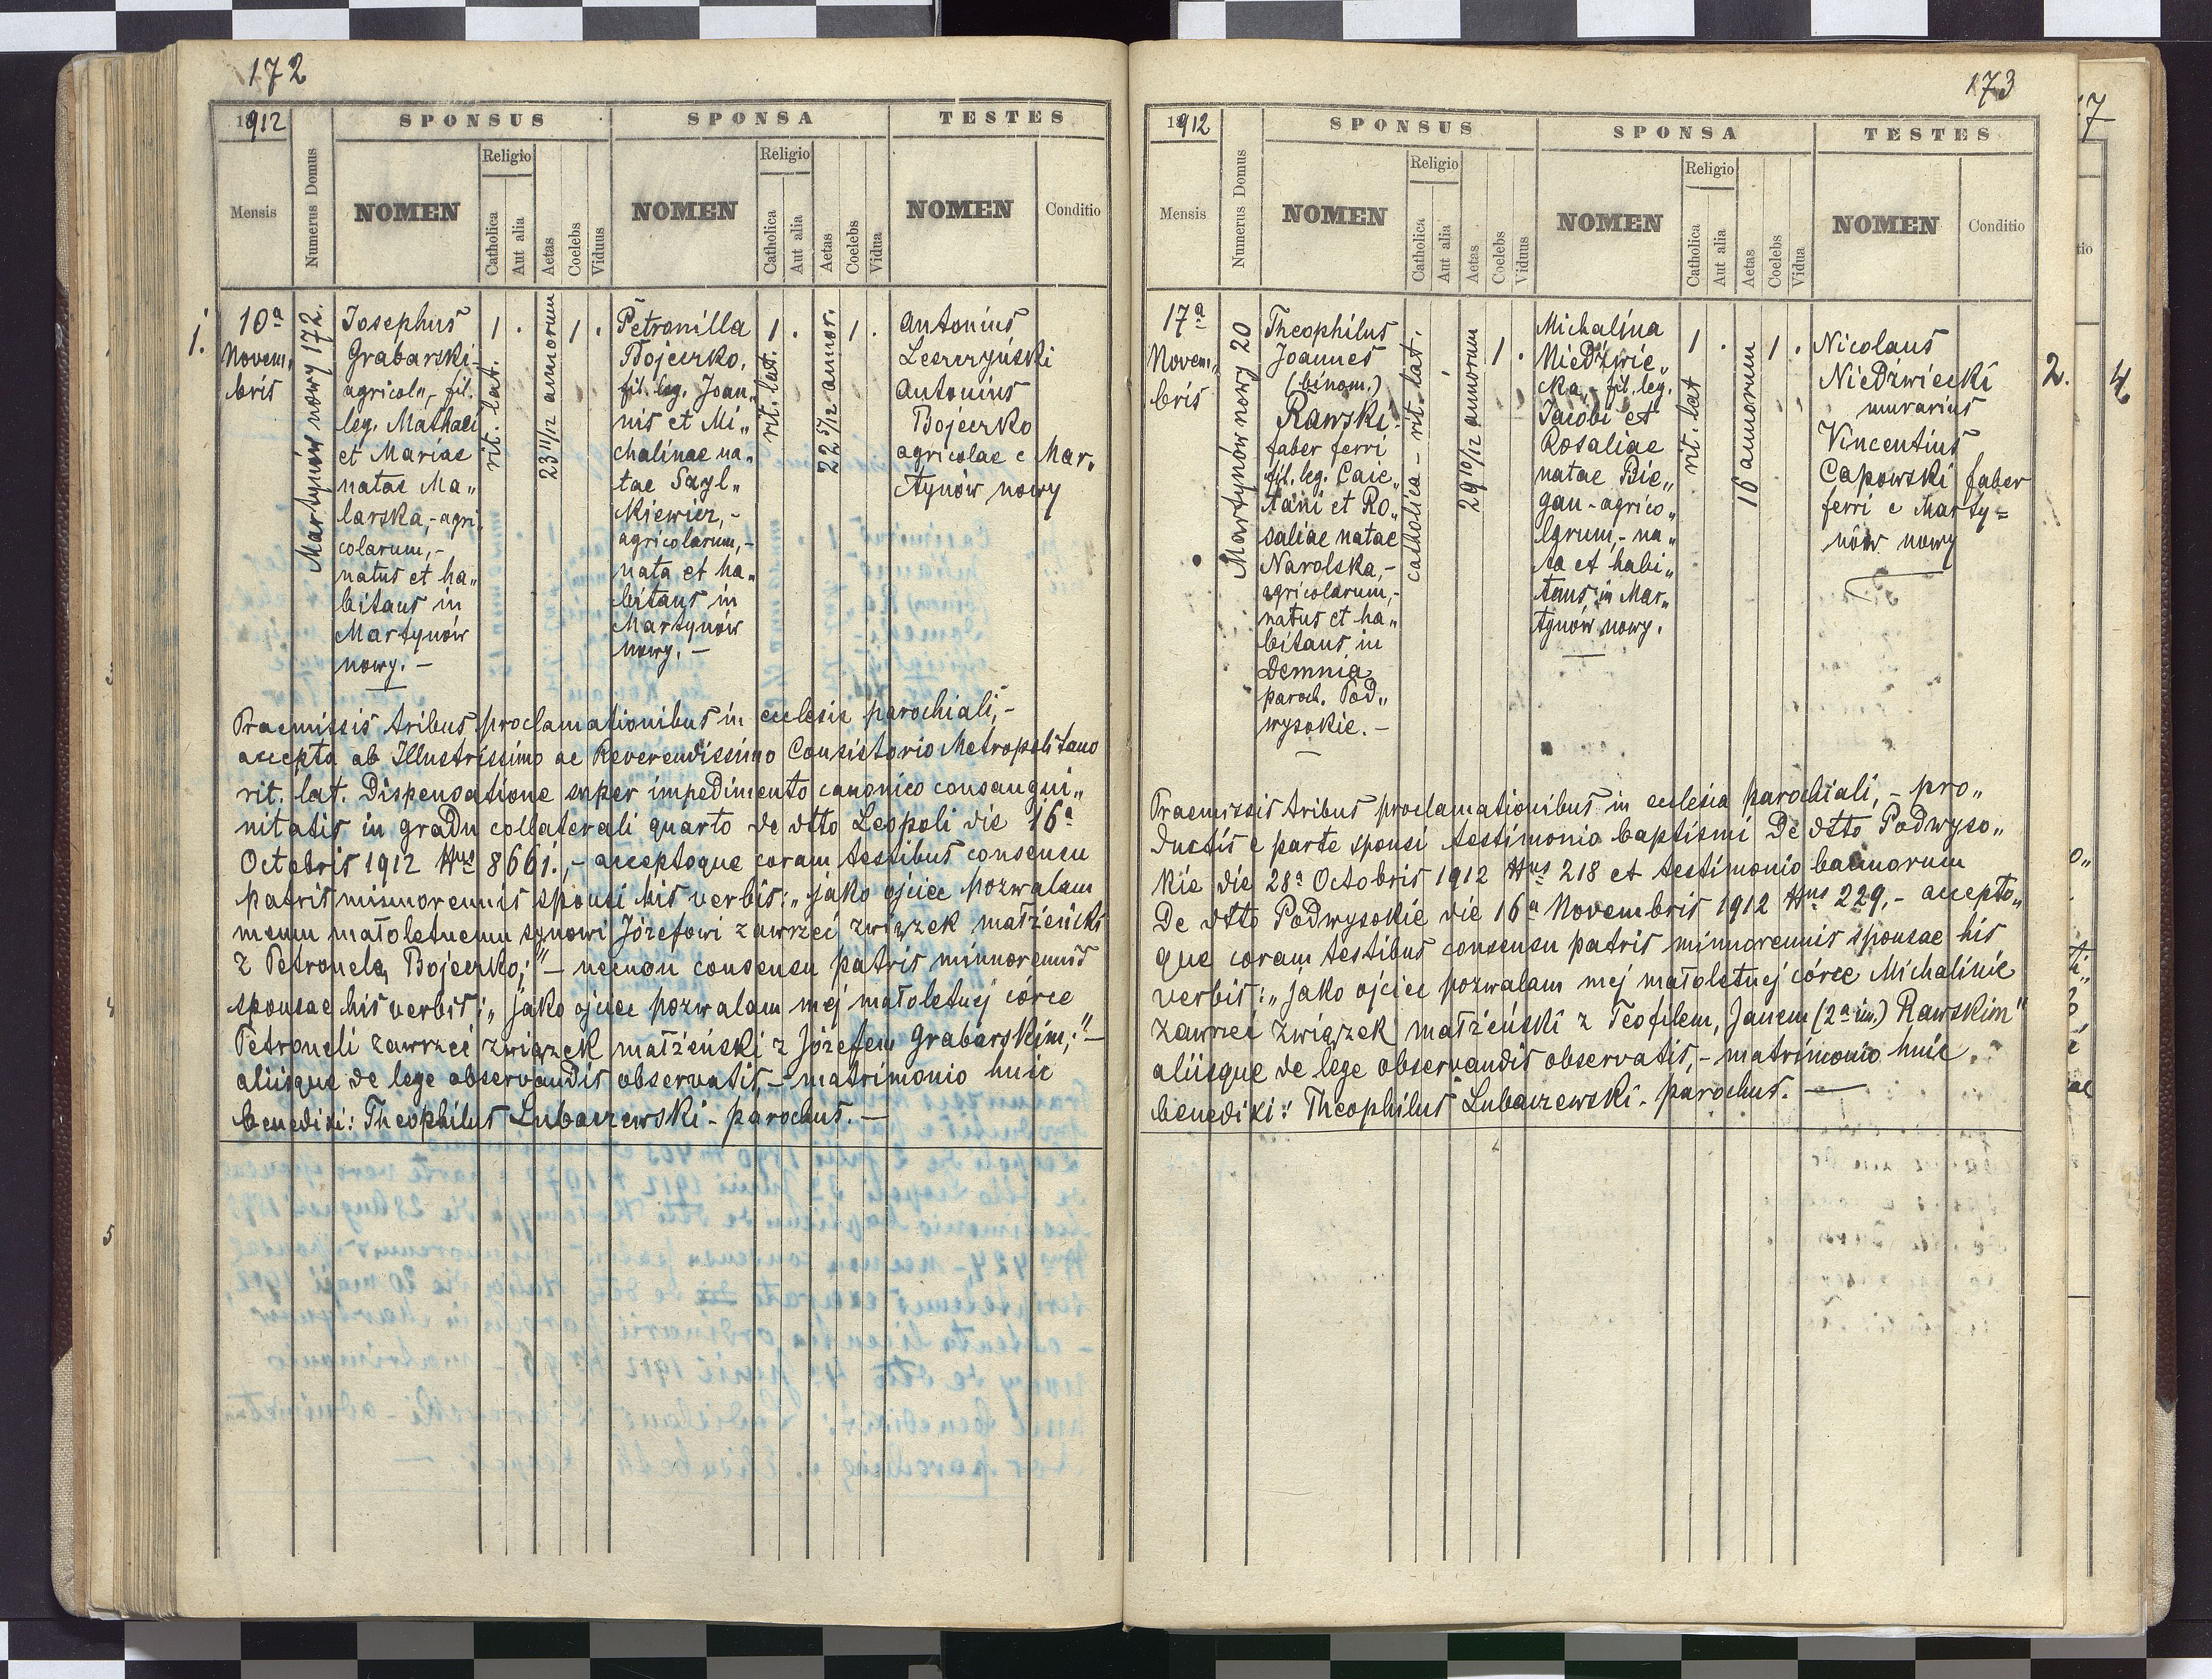 172
1912
SPONSUS
SPONSA
TESTES
Mensis
Numerus Domus
NOMEN
Religio
Catholica
Aut alia
Aetas
Coelebs
Viduus
NOMEN
Religio
Catholica
Aut alia
Aetas
Coelebs
Vidua
NOMEN
Conditio
1.
10ª
Novem„
bris
Martynów nowy 172.
Josephus
Grabarski-
agricola,- fil.
leg. Mathaei
et Mariae
natae Ma„
larska,-agri„
colarum,-
natus et ha„
bitans in
Martynów
nowy. —
1 .
rit. lat.
23 11/12 annorum
1 .
Petronilla
Bojeczko,
fil. leg. Joan„
nis et Mi„
chalinae na„
tae Szyl„
kiewicz,-
agricolarum,-
nata et ha„
bitans in
Martynów
nowy. —
1 .
rit. lat.
22 5/12 annor.
1 .
Antonius
Leszczyński
Antonius
Bojeczko
agricolae e Mar„
tynów nowy
Praemissis tribus proclamationibus in ecclesia parochiali,-
accepta ab Illustrissimo ac Reverendissimo Consistorio Metropolitano
rit. lat. Dispensatione super impedimento canonico consangui„
nitatis in gradu collaterali quarto de dtto Leopoli die 16ª
Octobris 1912 Nus 8661.,- acceptoque coram testibus consensu
patris minnorennis sponsi his verbis: „jako ojciec pozwalam
memu małoletniemu synowi Józefowi zawrzeć związek małżeński
z Petronelą Bojeczko;" — necnon consensu patris minnorennis
sponsae his verbis: „jako ojciec pozwalam mej małoletniej córce
Petroneli zawrzeć związek małżeński z Józefem Grabarskim;" —
aliisque de lege observandis observatis,- matrimonio huic
benedixi: Theophilus Lubaczewski - parochus. —
173
1912
SPONSUS
SPONSA
TESTES
Mensis
Numerus Domus
NOMEN
Religio
Catholica
Aut alia
Aetas
Coelebs
Viduus
NOMEN
Religio
Catholica
Aut alia
Aetas
Coelebs
Vidua
NOMEN
Conditio
17ª
Novem„
bris
Martynów nowy 20
Theophilus
Joannes
(binom.)
Rawski-
faber ferri
fil. leg. Caie„
tani et Ro„
saliae natae
Narolska,-
agricolarum,-
natus et ha„
bitans in
Demnia
paroch. Pod„
wysokie. —
catholica - rit. lat.
29 10/12 annorum
1 .
Michalina
Niedźwie„
cka,- fil. leg.
Jacobi et
Rosaliae
natae Bie„
gan - agrico„
larum,- na„
ta et habi„
tans in Mar„
tynów nowy.
1 .
rit. lat
16 annorum
1 .
Nicolaus
Niedzwiecki
murarius
Vincentius
Capowski faber
ferri e Marty=
nów nowy
2.
Praemissis tribus proclamationibus in ecclesia parochiali,- pro„
ductis e parte sponsi testimonio baptismi de dtto Podwyso„
kie die 28ª Octobris 1912 Nus 218 et testimonio bannorum
de dtto Podwysokie die 16ª Novembris 1912 Nus 229,- accepto„
que coram testibus consensu patris minnorennis sponsae his
verbis: „jako ojciec pozwalam mej małoletniej córce Michalinie
zawrzeć związek małżeński z Teofilem, Janem (2ª im.) Rawskim"
aliisque de lege observandis observatis,- matrimonio huic
benedixi: Theophilus Lubaczewski - parochus. —
4